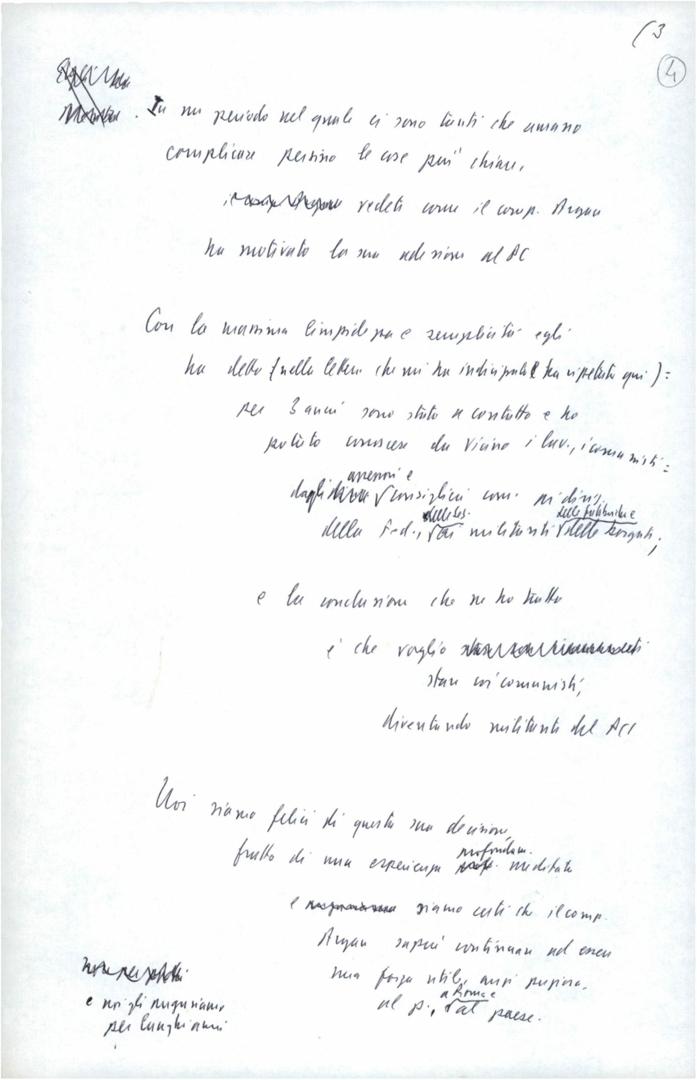 (3
4
In un periodo nel quale ci sono tanti che amano
complicare persino le cose più chiare,
vedete come il comp. Argan
ha motivato la sua adesione al PC
Con la massima limpidezza e semplicità egli
ha detto (nella lettera che mi ha indirizzato e ha ripetuto qui) :
per 3 anni sono stato a contatto e ho
potuto conoscere da vicino i lav., i comunisti :
assessori e
dagli consiglieri com. ai dirig.
della Fed., ai militanti delle borgate;
e la conclusione che ne ho tratto
è che voglio
stare coi comunisti,
diventando militante del PCI
Noi siamo felici di questa sua decisione,
profondam.
frutto di una esperienza meditata
e siamo certi che il comp.
Argan saprà continuare ad essere
una forza utile, anzi preziosa,
a Roma e
al p., al paese.
e noi gli auguriamo
per lunghi anni